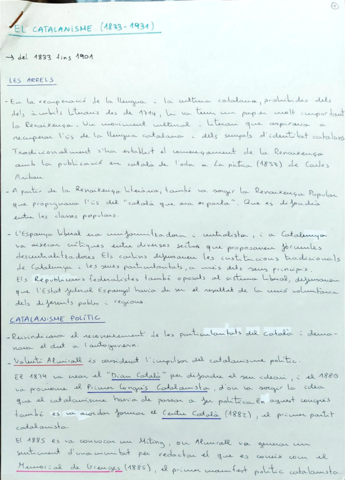 EL CATALANISME (1833-1931)
→ del 1833 fins 1901
LES ARRELS
- En la recuperació de la llengua i la cultura catalana, prohibides des
dels àmbits literaris des de 1714, hi va tenir un paper molt important
la Renaixença. Un moviment cultural i literari que aspirava a
recuperar l'ús de la llengua catalana i dels símbols d'identitat catalans.
Tradicionalment s'ha establert el començament de la Renaixença
amb la publicació en català de l'oda a la pàtria (1833) de Carles
Aribau.
- A partir de la Renaixença literària, també va sorgir la Renaixença Popular
que propugnava l'ús del "català que ara es parla". Que es difondria
entre les classes populars.
- L'Espanya liberal era uniformitzadora i centralista, i a Catalunya
va aixecar crítiques entre diversos sectors que proposaven fórmules
descentralitzadores. Els carlins defensaven les institucions tradicionals
de Catalunya i les seves particularitats, a més dels seus principis.
Els Republicans federalistes també oposats al sistema liberal, defensaven
que l'Estat federal Espanyol havia de ser el resultat de la unió voluntària
dels diferents pobles i regions.
CATALANISME POLÍTIC
- Reivindicava el reconeixement de les particularitats del català i dema-
nava el dret a l'autogovern.
- Valentí Almirall és considerat l'impulsor del catalanisme polític.
El 1879 va crear el "Diari Català" per difondre el seu ideari, i el 1880
va promoure el Primer Congrés Catalanista, d'on va sorgir la idea
que el catalanisme havia de passar a fer política. En aquest congrés
també es va acordar formar el Centre Català (1882), el primer partit
catalanista.
El 1885 es va convocar un Míting, on Almirall va generar un
sentiment d'unanimitat per redactar el que es coneix com el
Memorial de Greuges (1885), el primer manifest polític catalanista.